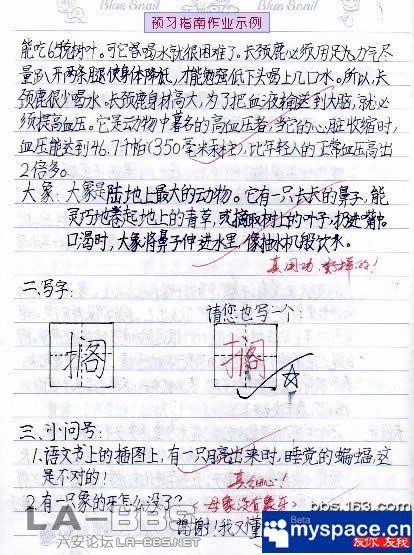 Blue Snail
Blue Snail
预习指南作业示例
能吃6多斤树叶。可它若喝水就很困难了。长颈鹿必须用足力气尽
量趴开两条腿使身体降低,才能勉强低下头喝上几口水。所以,长
颈鹿很少喝水。长颈鹿身材高大,为了把血液输送到大脑,就必
须提高血压。它是动物中著名的高血压者,当它的心脏收缩时,
血压能达到46.7千帕(350毫米汞柱),比年轻人的正常血压高出
2倍多。
大象:大象是陆地上最大的动物。它有一只长长的鼻子,能
灵巧地卷起地上的青草,或摘取树上的叶子,扔进嘴中。
口渴时,大象将鼻子伸进水里,像抽水机般饮水。
真用功,好样的!
二、写字:
请您也写一个:
搁
搁
三、小问号:
1.语文书上的插图上,有一只月亮出来时,睡觉的蝙蝠,这
是不对的!
真细心!
2.有一只象的牙怎么没了?
(母象没有象牙)
谢谢!我又懂
LA-BBS
六安论坛 LA-BBS.NET
bbs.163.com
Beta
myspace.cn
友你·友我